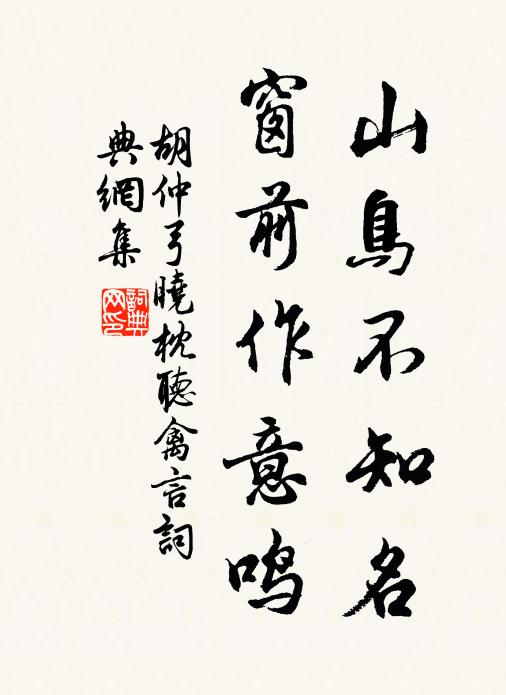 山鳥不知名
窗前作意鳴
胡仲弓曉枕聽禽言詞
典網集
詞典網印